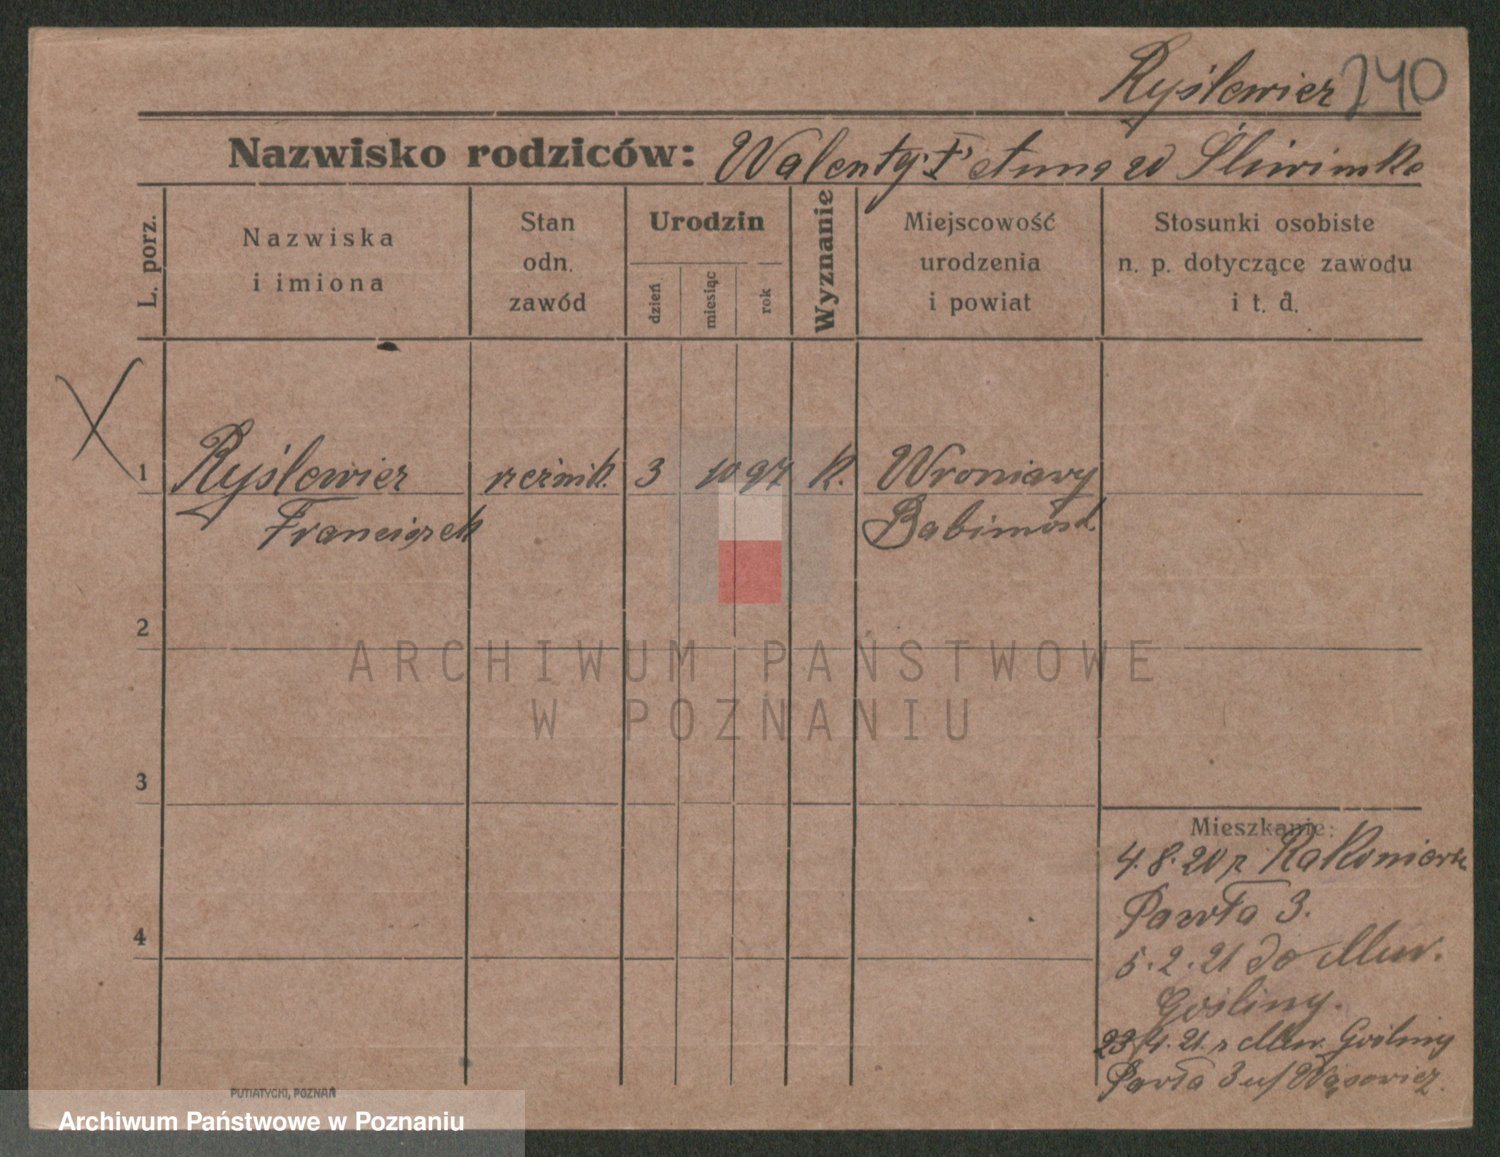 Ryślewicz 240
Nazwisko rodziców: Walenty i Petuna zd Śliwinska
L. porz.
Nazwiska
i imiona
Stan
odn.
zawód
Urodzin
dzień
miesiąc
rok
Wyznanie
Miejscowość
urodzenia
i powiat
Stosunki osobiste
n. p. dotyczące zawodu
i t. d.
1 Ryślewicz rzeźnik. 3 10 97 k. Wroniawy
Franciszek Babimost
2
3
4
Mieszkanie:
4. 8. 20 z Rakoniew
Pawła 3.
5. 2. 21 do Mur.
Gośliny.
23/4. 21. z Mur. Gośliny
Pawła 3 u/ Wąsowicz.
PUTIATYCKI, POZNAŃ
ARCHIWUM PAŃSTWOWE
W POZNANIU
Archiwum Państwowe w Poznaniu